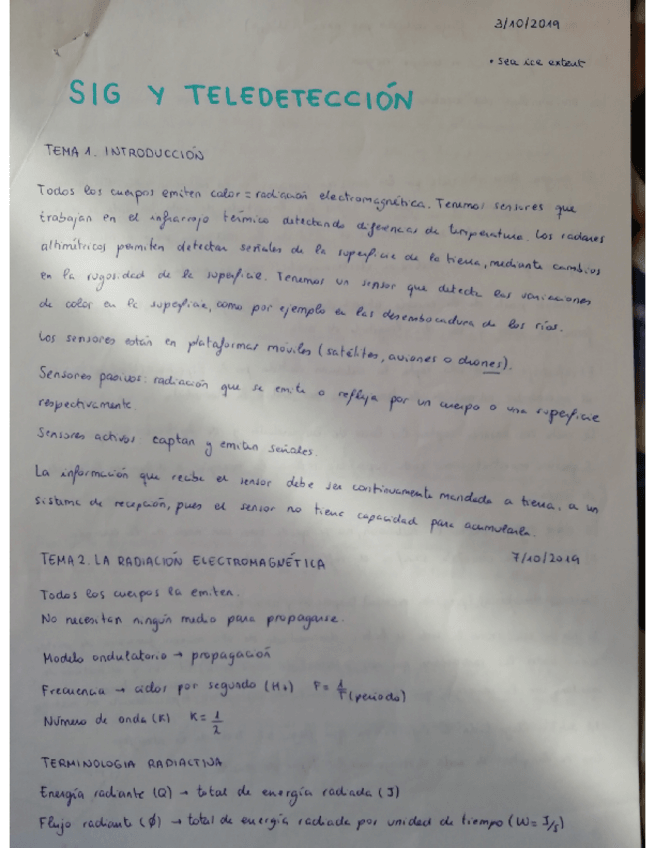 3/10/2019
• sea ice extent
SIG Y TELEDETECCIÓN
TEMA 1. INTRODUCCIÓN
Todos los cuerpos emiten calor = radiación electromagnética. Tenemos sensores que
trabajan en el infrarrojo térmico detectando diferencias de temperatura. Los radares
altimétricos permiten detectar señales de la superficie de la tierra, mediante cambios
en la rugosidad de la superficie. Tenemos un sensor que detecta las variaciones
de color en la superficie, como por ejemplo en las desembocadura de los ríos.
Los sensores están en plataformas móviles (satélites, aviones o drones).
Sensores pasivos: radiación que se emite o refleja por un cuerpo o una superficie
respectivamente.
Sensores activos captan y emiten señales.
La información que recibe el sensor debe ser continuamente mandada a tierra, a un
sistema de recepción, pues el sensor no tiene capacidad para acumularla.
TEMA 2. LA RADIACIÓN ELECTROMAGNÉTICA 7/10/2019
Todos los cuerpos la emiten.
No necesitan ningún medio para propagarse.
Modelo ondulatorio → propagación
Frecuencia → ciclos por segundo (Hz) F = 1/T (periodo)
Número de onda (K) K = 1/2
TERMINOLOGIA RADIACTIVA
Energía radiante (Q) → total de energía radiada (J)
Flujo radiante (Ø) → total de energía radiada por unidad de tiempo (W = J/s)